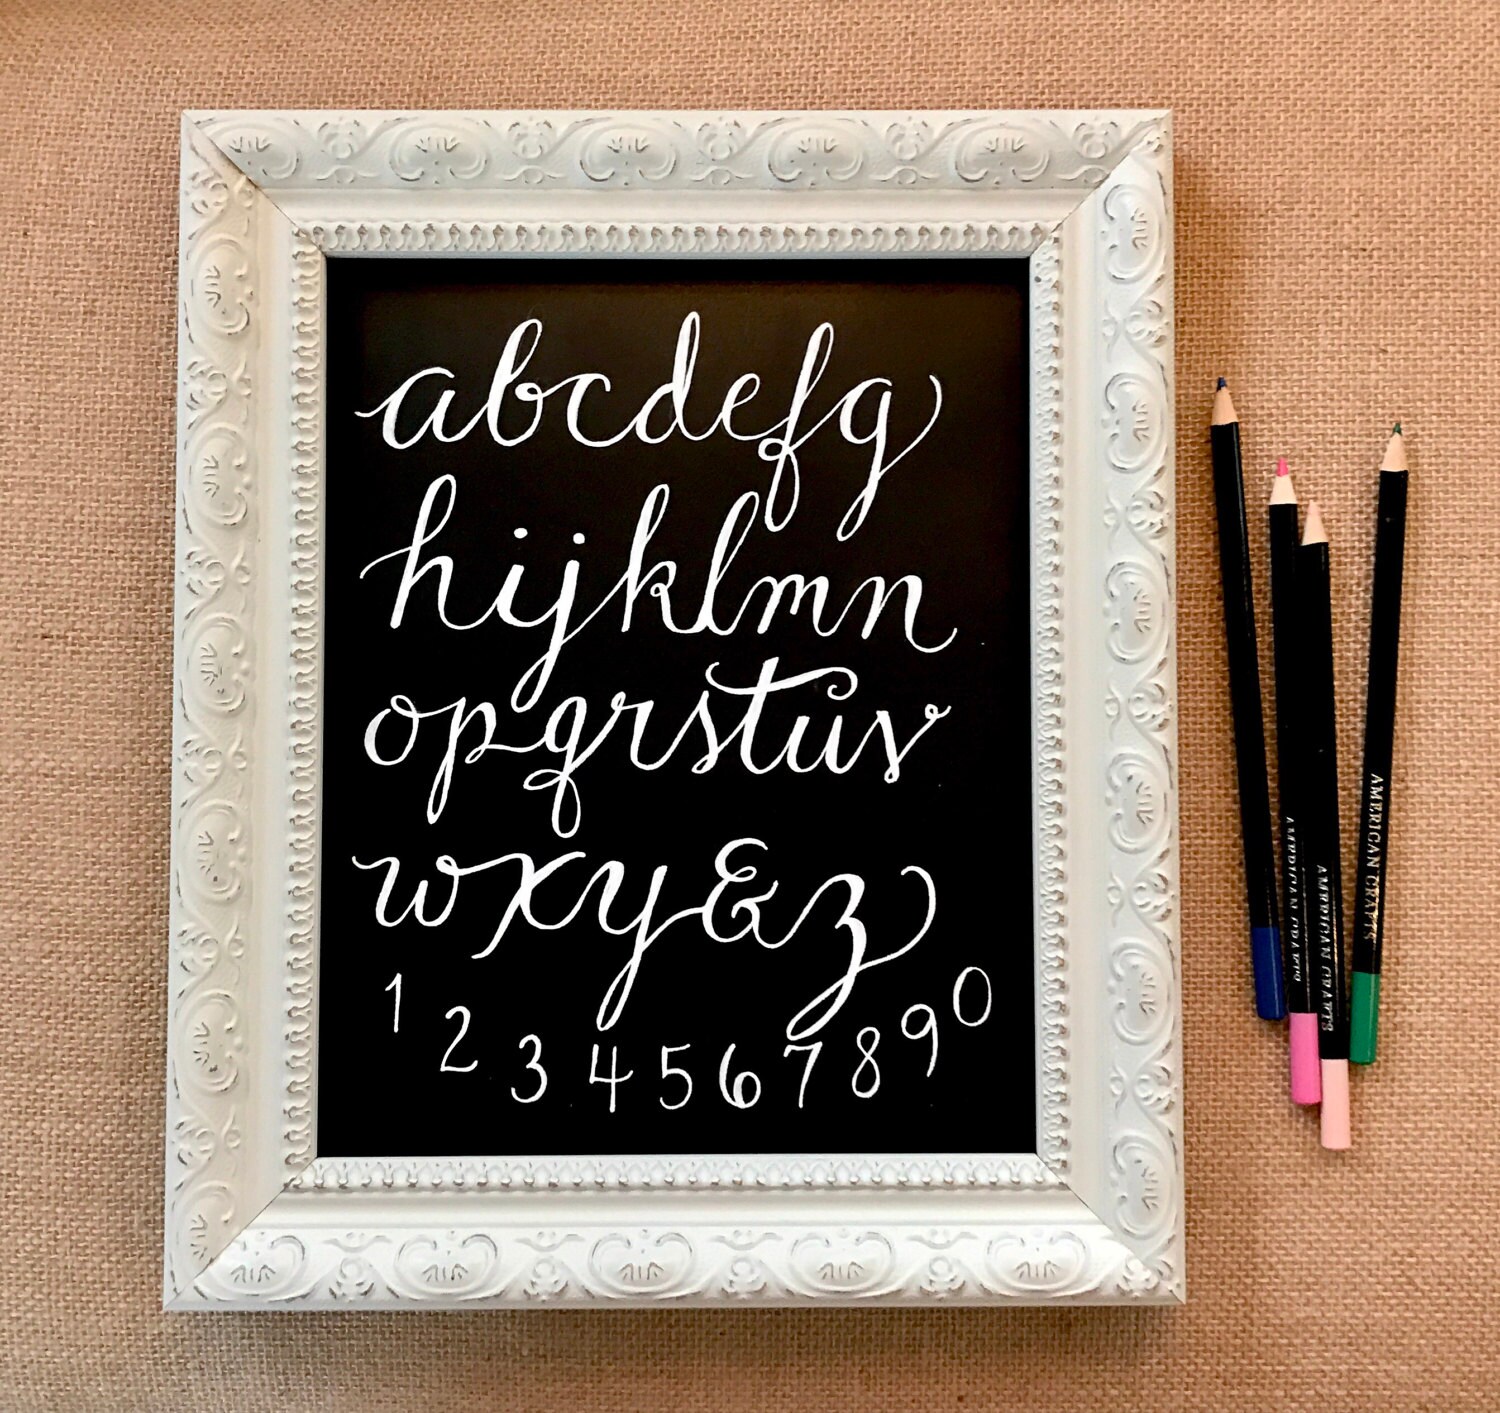 abcdefg
hijklmn
opqrstuv
wxy&z
1 2 3 4 5 6 7 8 9 0
AMERICAN CRAFTS
AMERICAN CRAFTS
AMERICAN CRAFTS